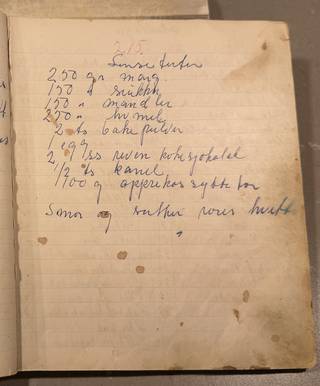 215
Linseterter
250 gr marg.
150 " sukker
150 " mandler
250 " hvmel
2 ts bakepulver
1 egg
2 ss reven kokesjokolat
1/2 ts kanel
100 g apprekossyltetøy
Smør og sukker røres hvitt